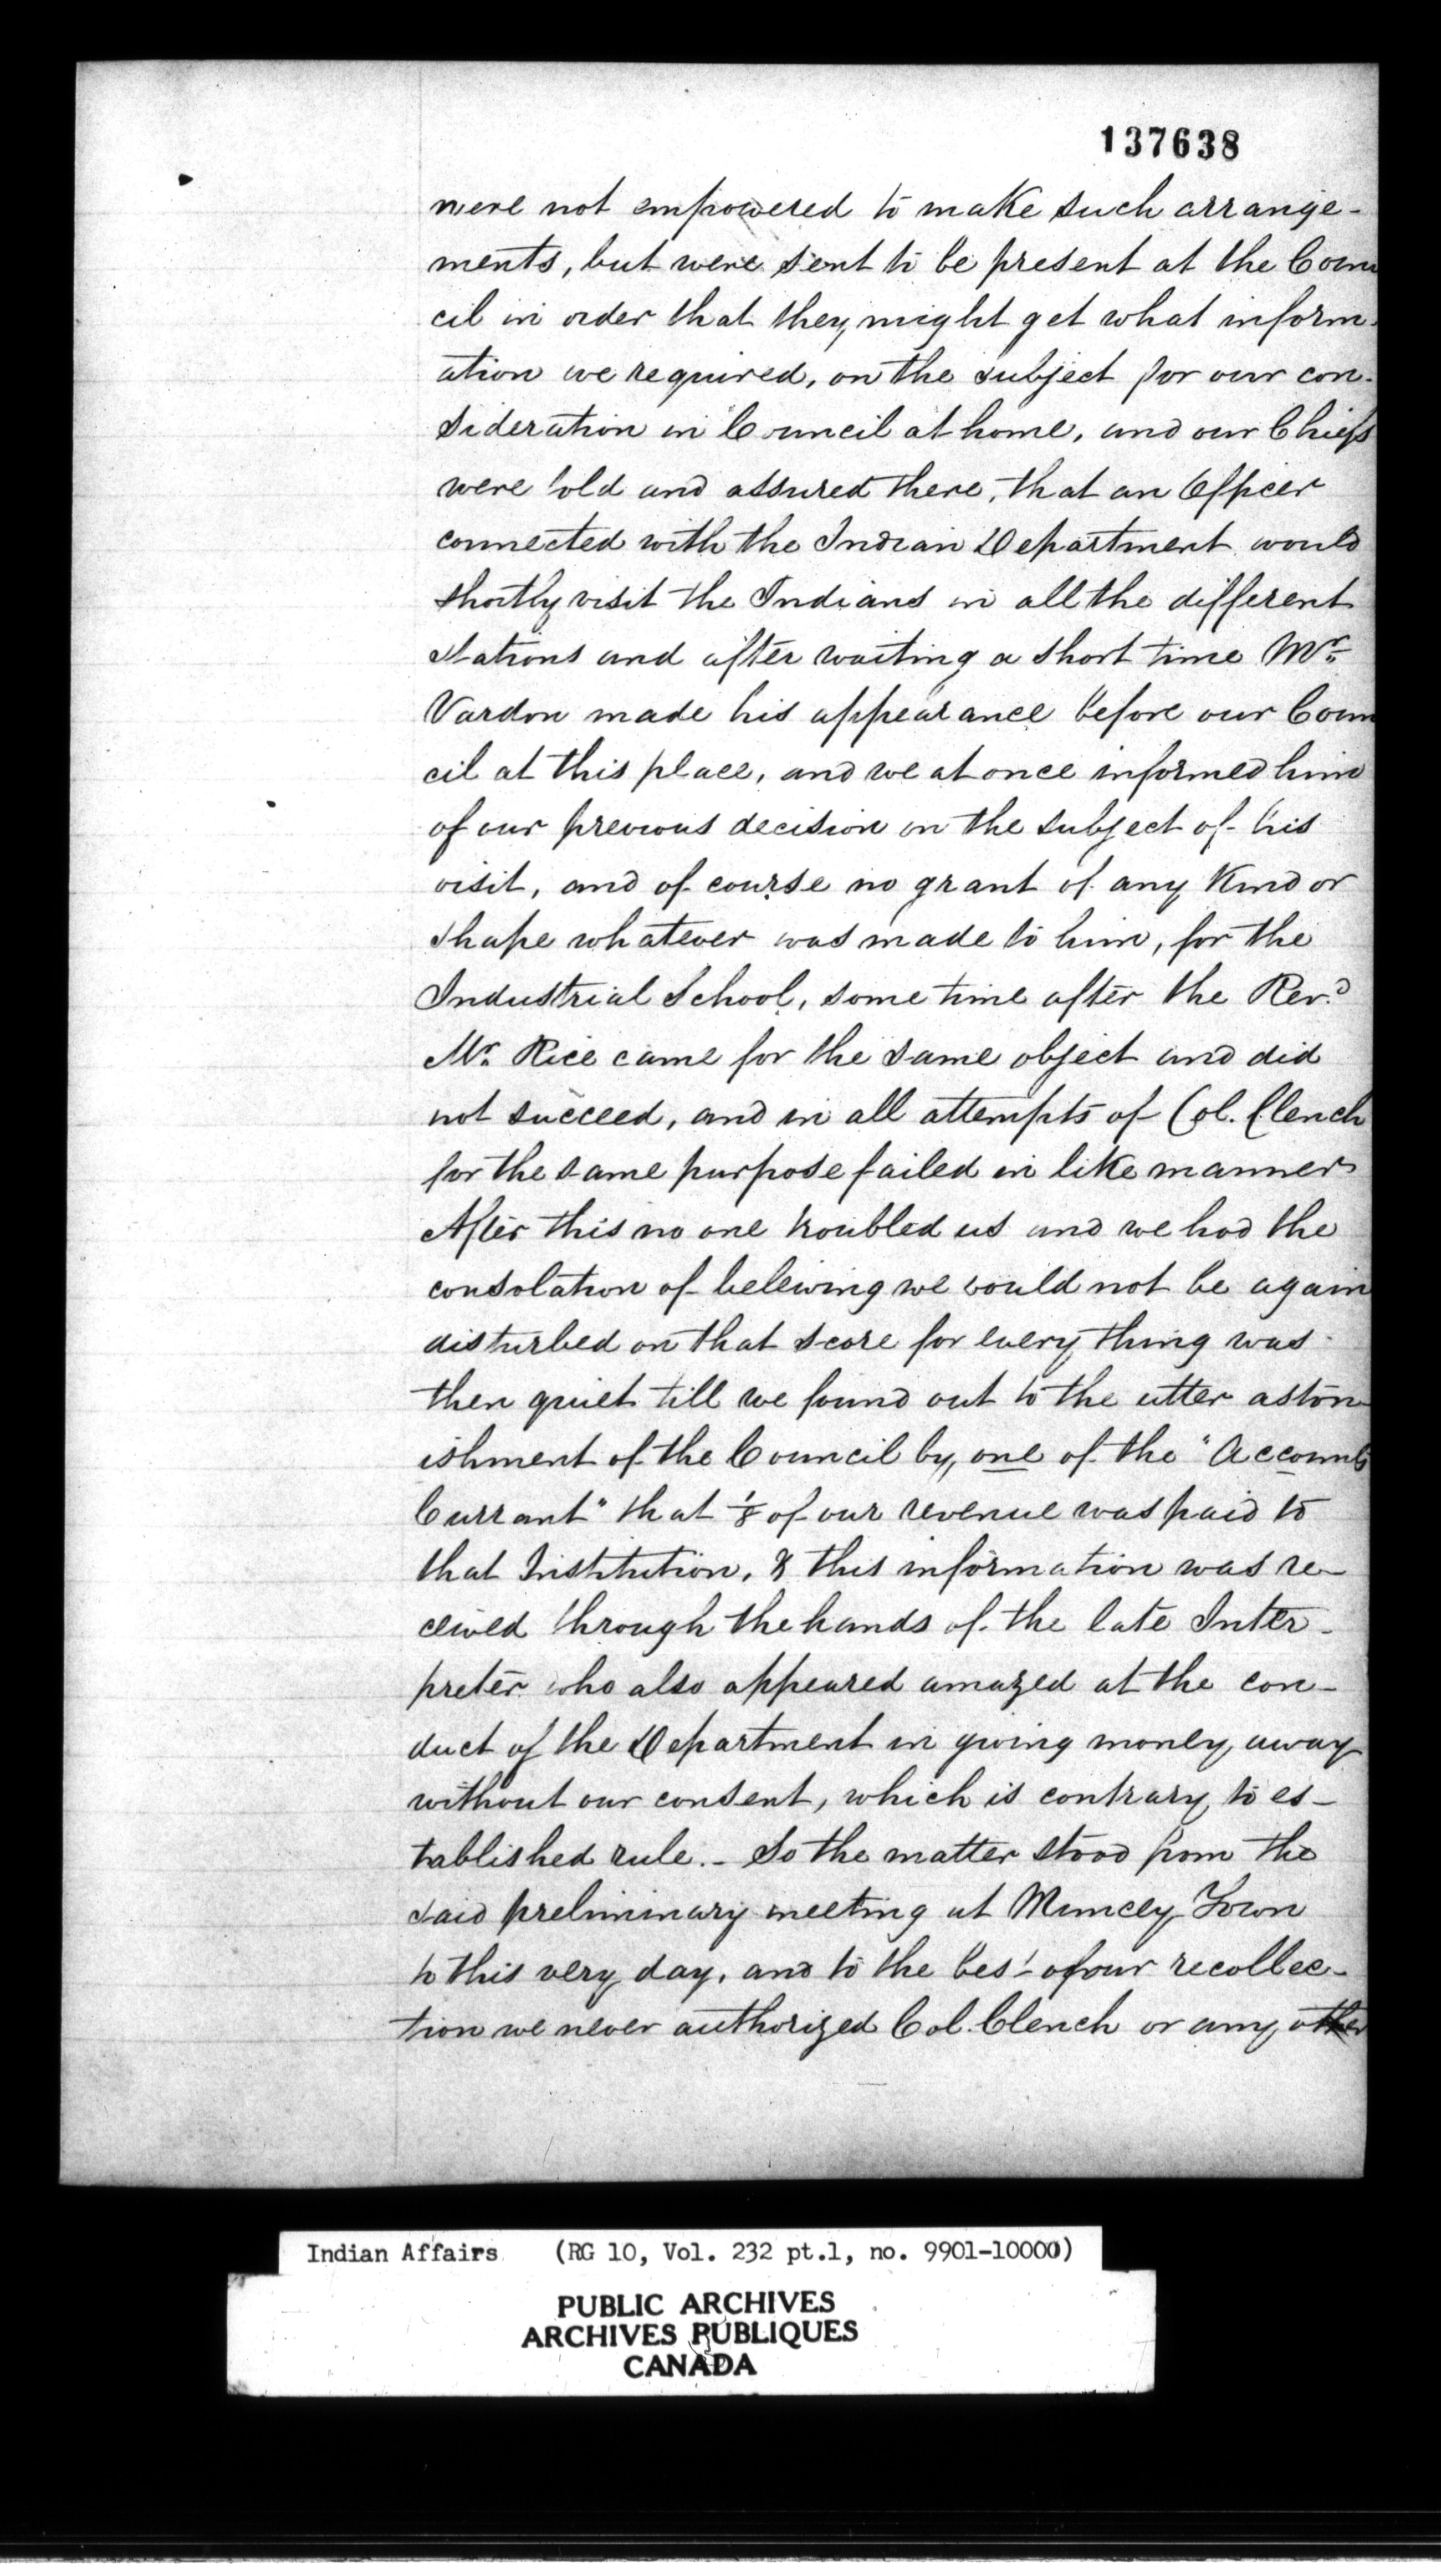 137638
were not empowered to make such arrange-
ments, but were sent to be present at the Coun
cil in order that they might get what inform-
ation we required, on the subject for our con-
sideration in Council at home, and our Chiefs
were told and assured there, that an Officer
connected with the Indian Department would
shortly visit the Indians in all the different
Stations and after waiting a short time Mr.
Vardon made his appearance before our Coun
cil at this place, and we at once informed him
of our previous decision on the subject of his
visit, and of course no grant of any Kind or
shape whatever was made to him, for the
Industrial School, some time after the Revd.
Mr. Rice came for the same object and did
not succeed, and in all attempts of Col. Clench
for the same purpose failed in like manner
After this no one troubled us and we had the
consolation of beleiving we would not be again
disturbed on that score for every thing was
then quiet till we found out to the utter aston-
ishment of the Council by, one of the "Accounts
Currant" that 1/8 of our revenue was paid to
that Institution, & this information was re-
ceived through the hands of the late Inter-
preter who also appeared amazed at the con-
duct of the Department in giving money away
without our consent, which is contrary to es-
tablished rule. - So the matter stood from the
said preliminary meeting at Muncey Town
to this very day, and to the best of our recollec-
tion we never authorized Col. Clench or any other
Indian Affairs (RG 10, Vol. 232 pt.1, no. 9901-10000)
PUBLIC ARCHIVES
ARCHIVES PUBLIQUES
CANADA